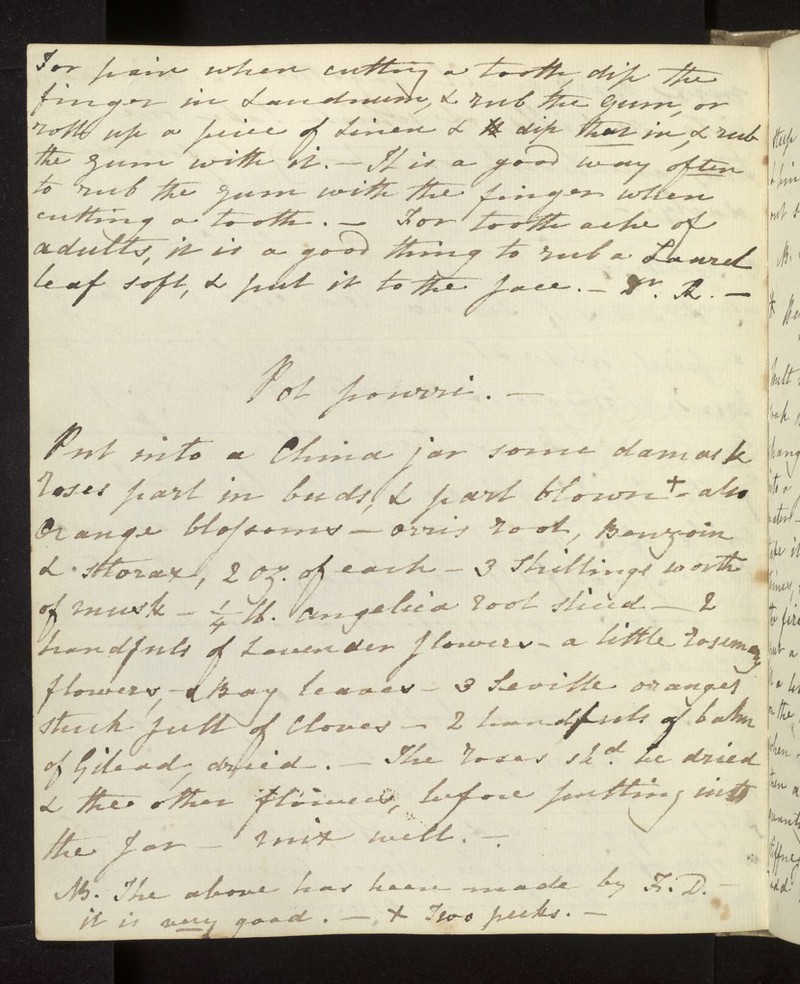 For pain when cutting a tooth, dip the
finger in Laudnum, & rub the gum, or
roll up a piece of Linen & dip that in, & rub
the gum with it. — It is a good way often
to rub the gum with the finger when
cutting a tooth. — For tooth ache of
adults, it is a good thing to rub a Laurel
leaf soft, & put it to the face. — Dr. R. —
Pot powrri. —
Put into a China jar some damask
roses part in buds, & part blown + - also
Orange blossoms — orris root, Benzoin
& Storax, 2 oz. of each — 3 Shillings worth
of musk — 1/4 lb. angelica root sliced — 2
handfuls of Lavender flowers — a little rosemary
flowers, — & Bay leaves — 3 Seville oranges
stuck full of Cloves — 2 handfuls of balm
of Gilead, dried. — The roses shd. be dried
& the other flowers, before putting into
the Jar — mix well. —
NB. The above has been made by F. D. —
it is very good. — + Two pecks. —